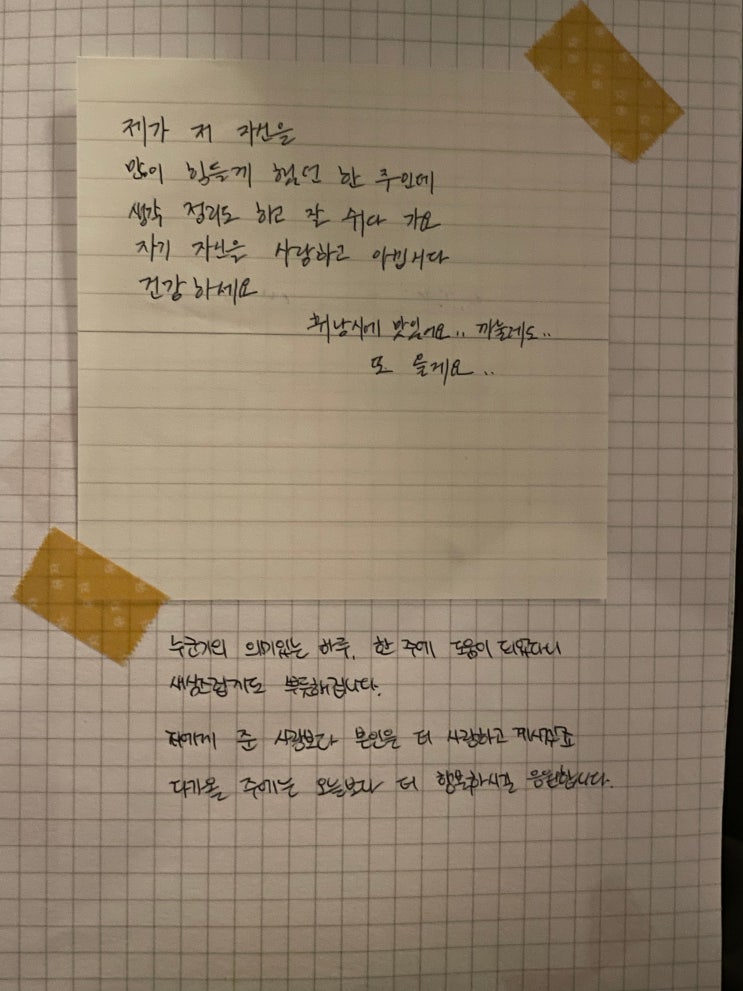 제가 저 자신을
많이 힘들게 했던 한 주인데
생각 정리도 하고 잘 쉬다 가요
자기 자신을 사랑하고 아낍시다
건강하세요
휘낭시에 맛있어요.. 까눌레도..
또 올게요..
누군가의 의미있는 하루, 한 주에 도움이 되었다니
새삼스럽지도 뿌듯해집니다.
저에게 준 사랑보다 본인을 더 사랑하고 계시죠
다가올 주에는 오늘보다 더 행복하시길 응원합니다.